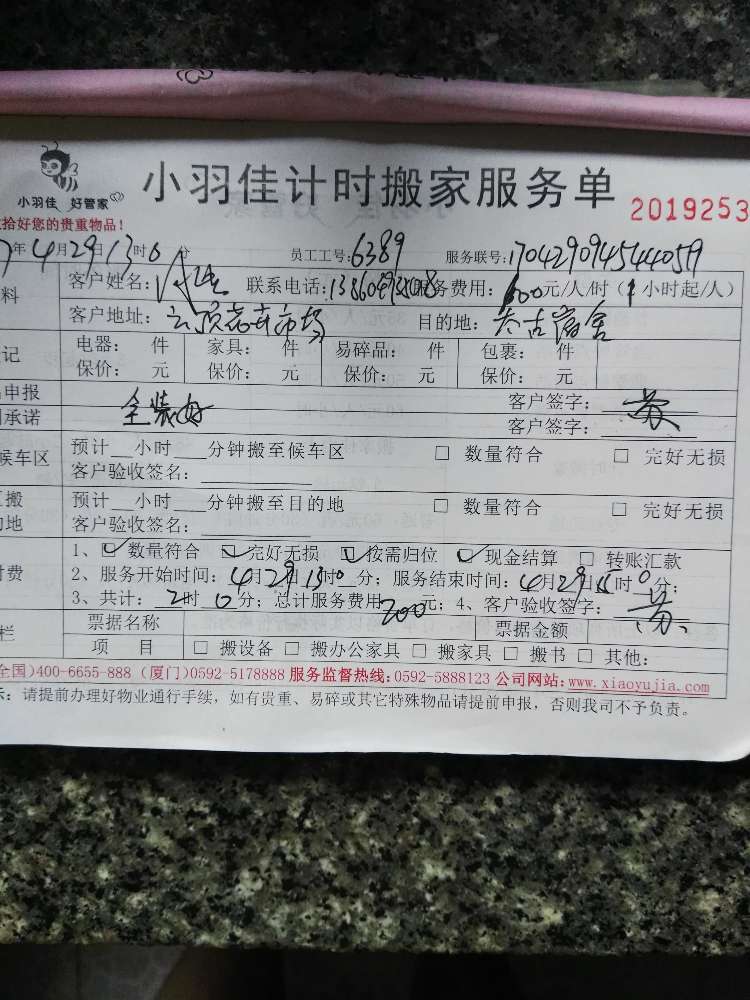 小羽佳 好管家
小羽佳计时搬家服务单
2019253
拾好您的贵重物品!
年4月29日13时0分 员工工号:6389 服务联号:1704290945444059
料 客户姓名: 联系电话: 服务费用: 元/人/时(1小时起/人)
客户地址: 云顶花卉市场 目的地: 太古宿舍
记 电器: 件 家具: 件 易碎品: 件 包裹: 件
保价: 元 保价: 元 保价: 元 保价: 元
申报 全装好 客户签字:
承诺 客户签字:
候车区 预计__小时___分钟搬至候车区 □ 数量符合 □ 完好无损
客户验收签名:
搬 预计__小时___分钟搬至目的地 □ 数量符合 □ 完好无损
的地 客户验收签名:
付费 1、☑数量符合 ☑完好无损 ☑按需归位 ☑现金结算 □ 转账汇款
2、服务开始时间:4月29日13时0分; 服务结束时间:4月29日15时0分;
3、共计:2时0分; 总计服务费用200元; 4、客户验收签字:
栏 票据名称 票据金额
项 目 □ 搬设备 □ 搬办公家具 □ 搬家具 □ 搬书 □ 其他:
全国)400-6655-888 (厦门)0592-5178888 服务监督热线:0592-5888123 公司网站:www.xiaoyujia.com
示: 请提前办理好物业通行手续,如有贵重、易碎或其它特殊物品请提前申报,否则我司不予负责。